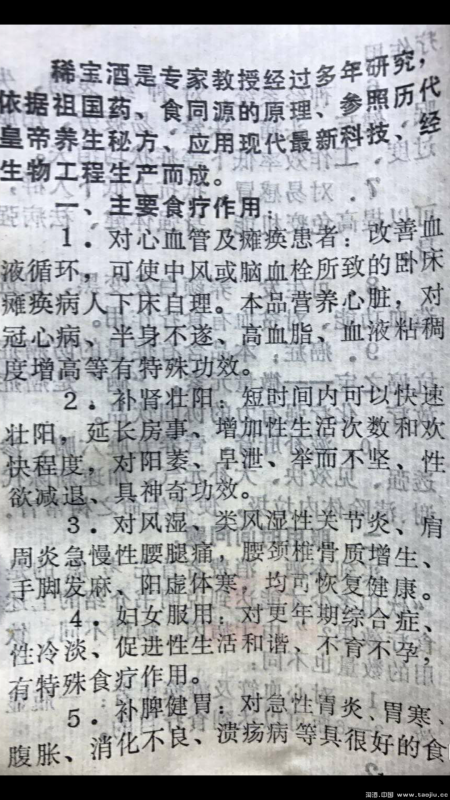 稀宝酒是专家教授经过多年研究，
依据祖国药、食同源的原理、参照历代
皇帝养生秘方、应用现代最新科技、经
生物工程生产而成。
一、主要食疗作用
1．对心血管及瘫痪患者：改善血
液循环，可使中风或脑血栓所致的卧床
瘫痪病人下床自理。本品营养心脏，对
冠心病、半身不遂、高血脂、血液粘稠
度增高等有特殊功效。
2．补肾壮阳：短时间内可以快速
壮阳，延长房事、增加性生活次数和欢
快程度，对阳萎、早泄、举而不坚、性
欲减退、具神奇功效。
3．对风湿、类风湿性关节炎、肩
周炎急慢性腰腿痛，腰颈椎骨质增生、
手脚发麻、阳虚体寒，均可恢复健康。
4．妇女服用：对更年期综合症、
性冷淡、促进性生活和谐、不育不孕，
有特殊食疗作用。
5．补脾健胃：对急性胃炎、胃寒、
腹胀、消化不良、溃疡病等具很好的食
淘酒.中国 www.taojiu.cc